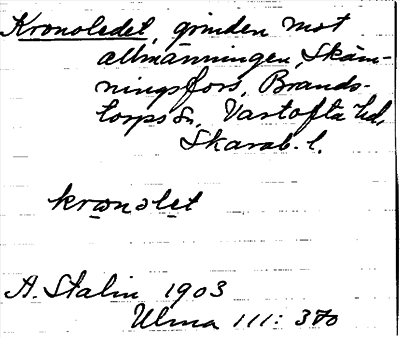 Kronoledet, grinden mot
allmänningen, Skäm-
ningsfors, Brands-
torps sn, Vartofta hd,
Skarab. l.
kronolet
A. Stalin 1903
Ulma 111: 370